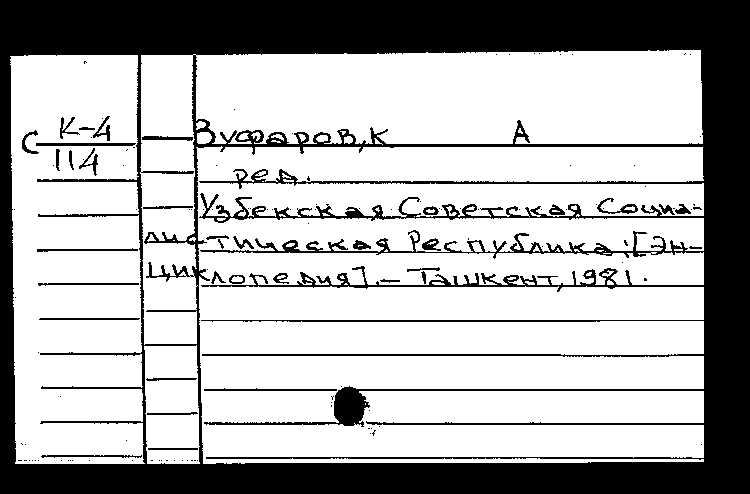 С К-4
114
Зуфаров, К А
ред.
Узбекская Советская Социа-
листическая Республика: [Эн-
циклопедия]. — Ташкент, 1981.